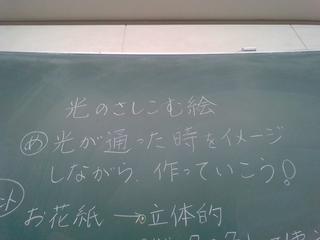 光のさしこむ絵
め 光が通った時をイメージ
しながら、作っていこう!
ント
お花紙→立体的